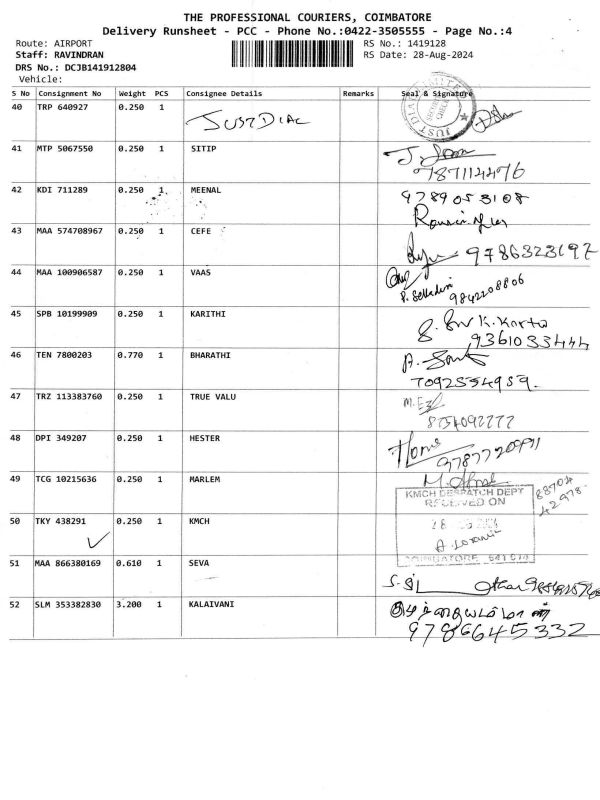 THE PROFESSIONAL COURIERS, COIMBATORE
Delivery Runsheet - PCC - Phone No.:0422-3505555 - Page No.:4
Route: AIRPORT RS No.: 1419128
Staff: RAVINDRAN RS Date: 28-Aug-2024
DRS No.: DCJB141912804
Vehicle:
S No Consignment No Weight PCS Consignee Details Remarks Seal & Signature
40 TRP 640927 0.250 1 JUSTDIAL
41 MTP 5067550 0.250 1 SITIP
787114476
42 KDI 711289 0.250 1 MEENAL 9789053108
43 MAA 574708967 0.250 1 CEFE 9786323197
44 MAA 100906587 0.250 1 VAAS
9842208806
45 SPB 10199909 0.250 1 KARITHI
9361033444
46 TEN 7800203 0.770 1 BHARATHI
7092554959.
47 TRZ 113383760 0.250 1 TRUE VALU
8754092777
48 DPI 349207 0.250 1 HESTER
49 TCG 10215636 0.250 1 MARLEM
KMCH DESPATCH DEPT
RECEIVED ON
88704
42978.
50 TKY 438291 0.250 1 KMCH
COIMBATORE 641 014
51 MAA 866380169 0.610 1 SEVA
52 SLM 353382830 3.200 1 KALAIVANI
9786645332